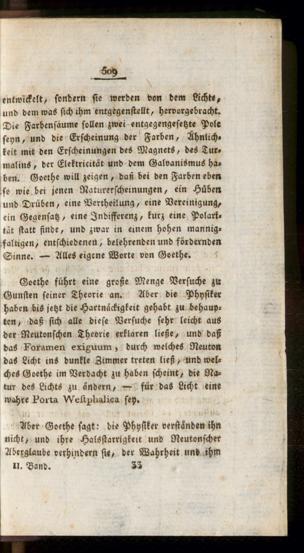 509
entwickelt, sondern sie werden von dem Lichte,
und dem was sich ihm entgegenstellt, hervorgebracht.
Die Farbensäume sollen zwei entgegengesetzte Pole
seyn, und die Erscheinung der Farben, Ähnlich-
keit mit den Erscheinungen des Magnets, des Tur-
malins, der Elektricität und dem Galvanismus ha-
ben. Goethe will zeigen, daß bei den Farben eben
so wie bei jenen Naturerscheinungen, ein Hüben
und Drüben, eine Vertheilung, eine Vereinigung,
ein Gegensatz, eine Indifferenz, kurz eine Polari-
tät statt finde, und zwar in einem hohen mannig-
faltigen, entschiedenen, belehrenden und fördernden
Sinne. — Alles eigene Worte von Goethe.
Goethe führt eine große Menge Versuche zu
Gunsten seiner Theorie an. Aber die Physiker
haben bis jetzt die Hartnäckigkeit gehabt zu behaup-
ten, daß sich alle diese Versuche sehr leicht aus
der Neutonschen Theorie erklären ließe, und daß
das Foramen exiguum, durch welches Neuton
das Licht ins dunkle Zimmer treten ließ, und wel-
ches Goethe im Verdacht zu haben scheint, die Na-
tur des Lichts zu ändern, — für das Licht eine
wahre Porta Westphalica sey.
Aber Goethe sagt: die Physiker verständen ihn
nicht, und ihre Halsstarrigkeit und Neutonscher
Aberglaube verhindern sie, der Wahrheit und ihm
II. Band. 33